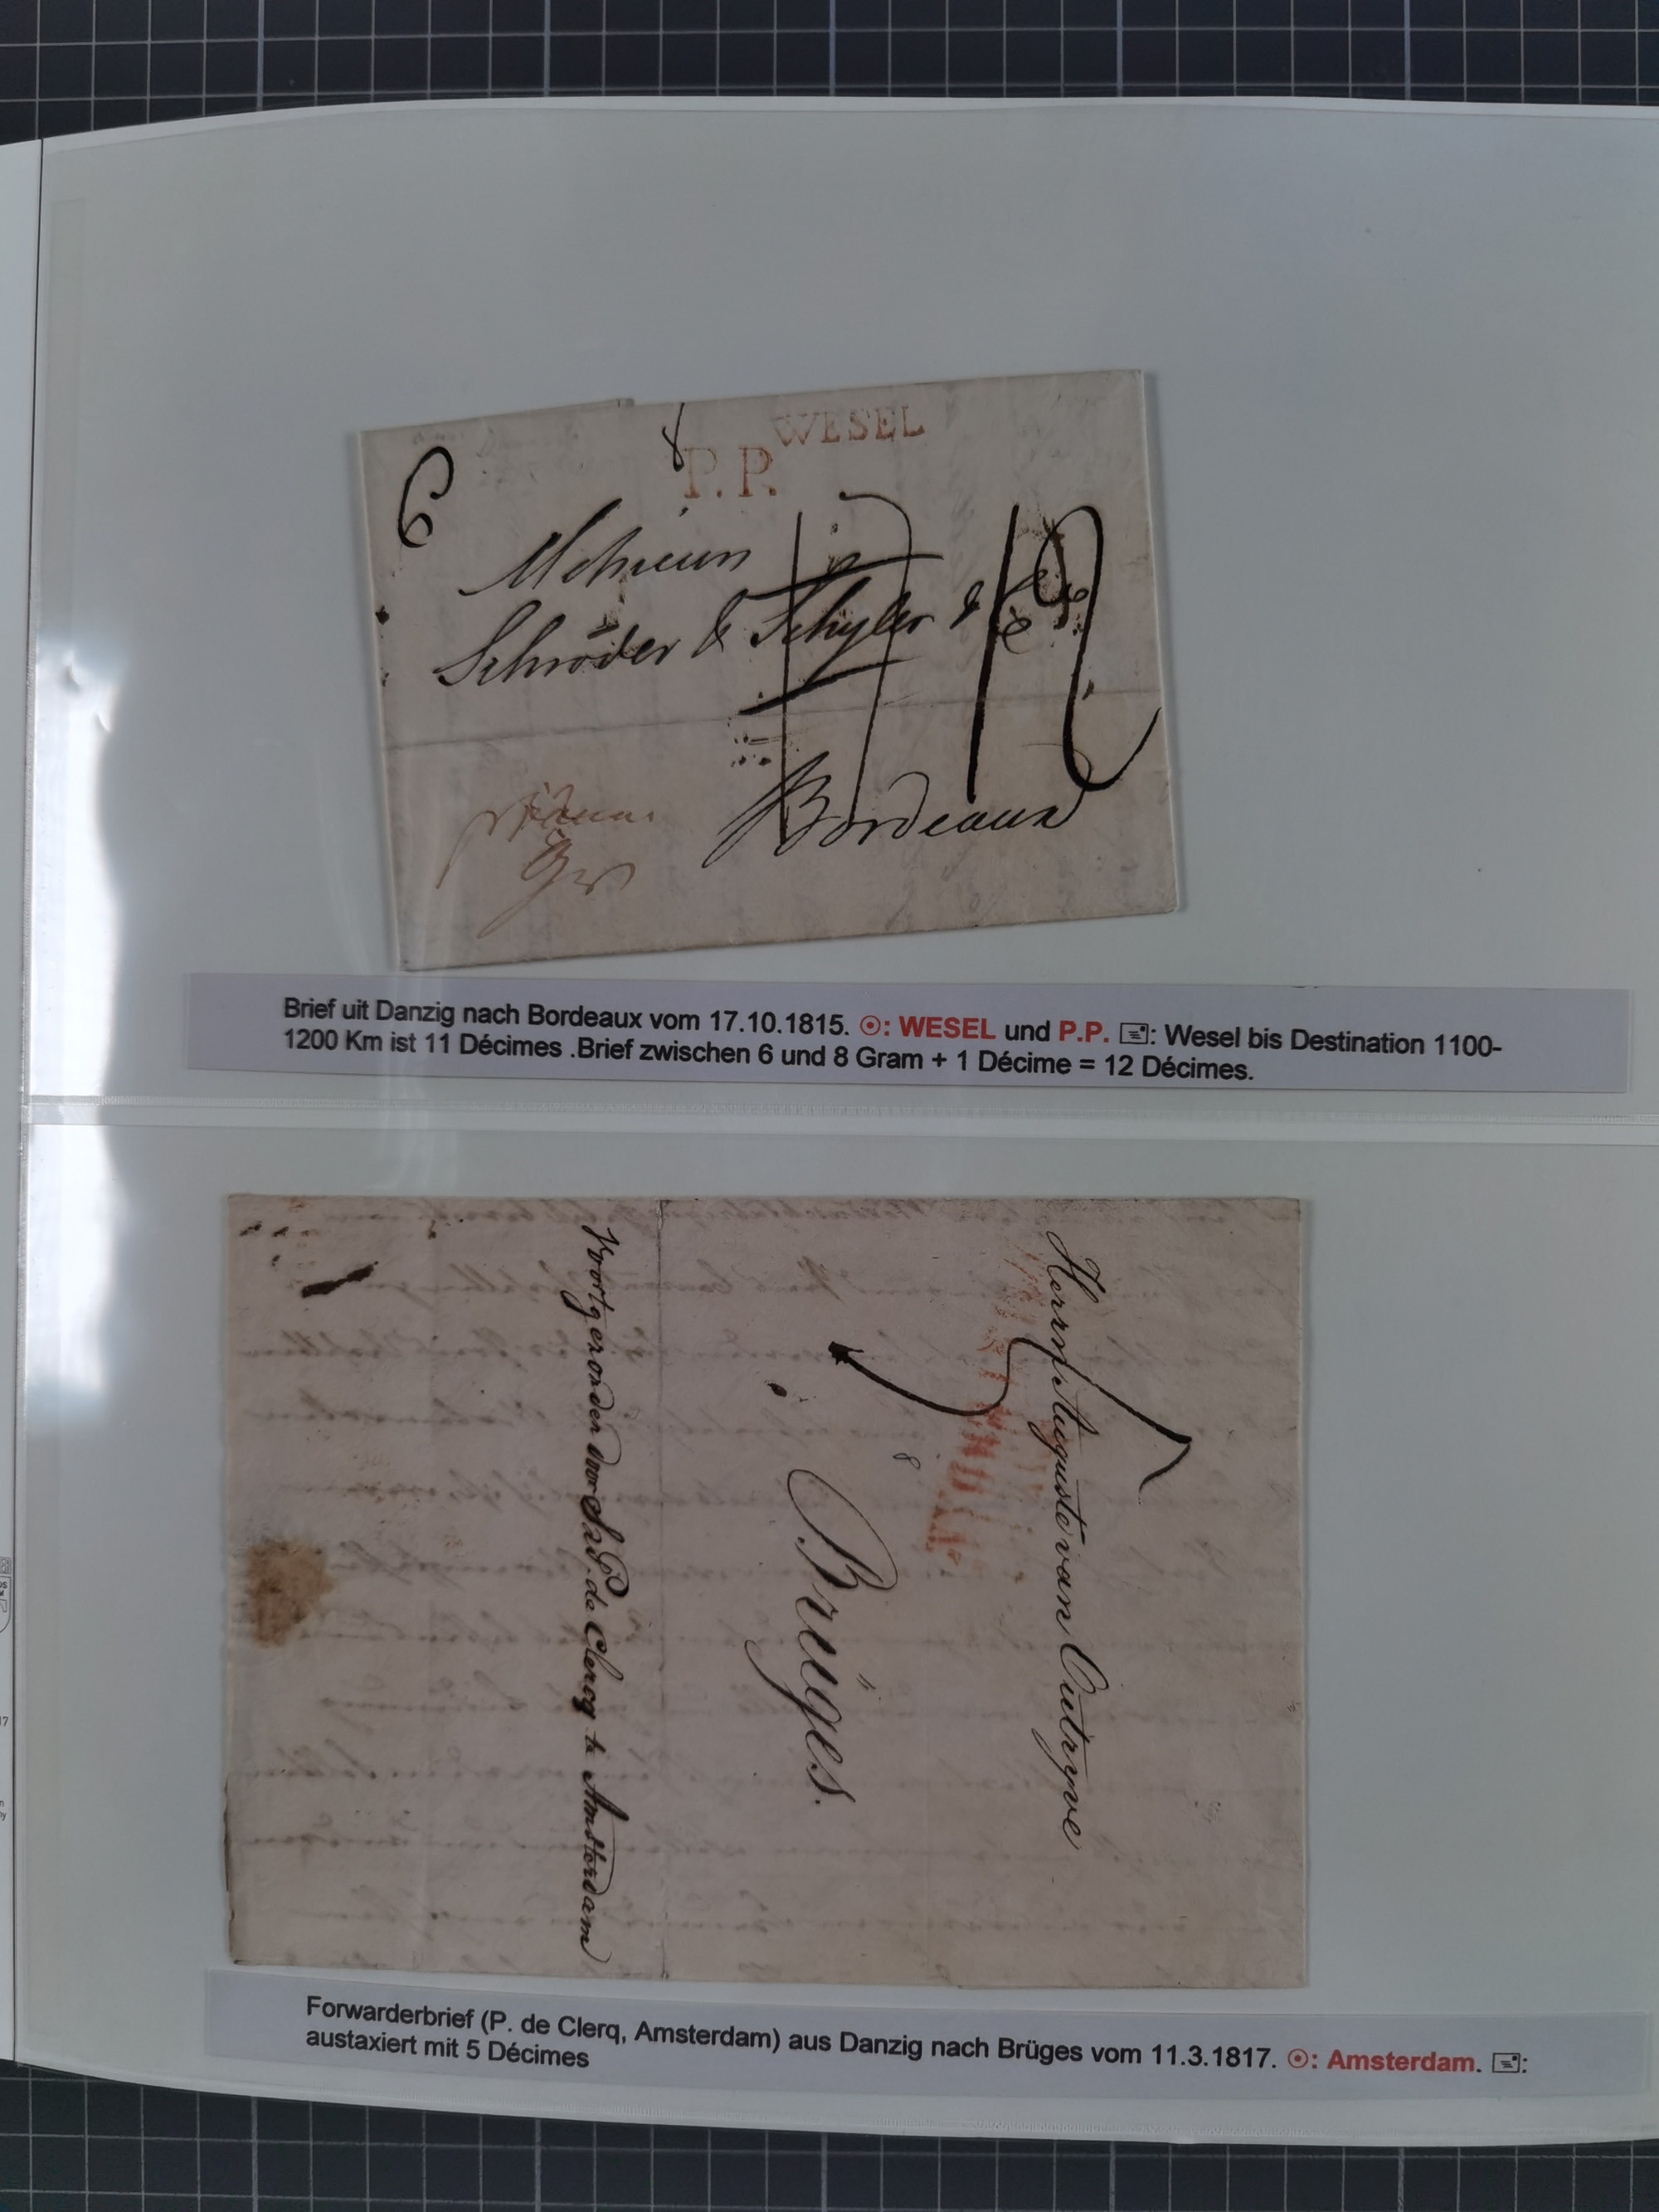 WESEL
P.P.
6
12
Schröder & Schyler & Co
Bordeaux
Brief uit Danzig nach Bordeaux vom 17.10.1815. ☉: WESEL und P.P. 🖃: Wesel bis Destination 1100-
1200 Km ist 11 Décimes .Brief zwischen 6 und 8 Gram + 1 Décime = 12 Décimes.
Herrn Auguste van Outryve
Brüges.
de Clercq te Amsterdam
Forwarderbrief (P. de Clerq, Amsterdam) aus Danzig nach Brüges vom 11.3.1817. ☉: Amsterdam. 🖃:
austaxiert mit 5 Décimes